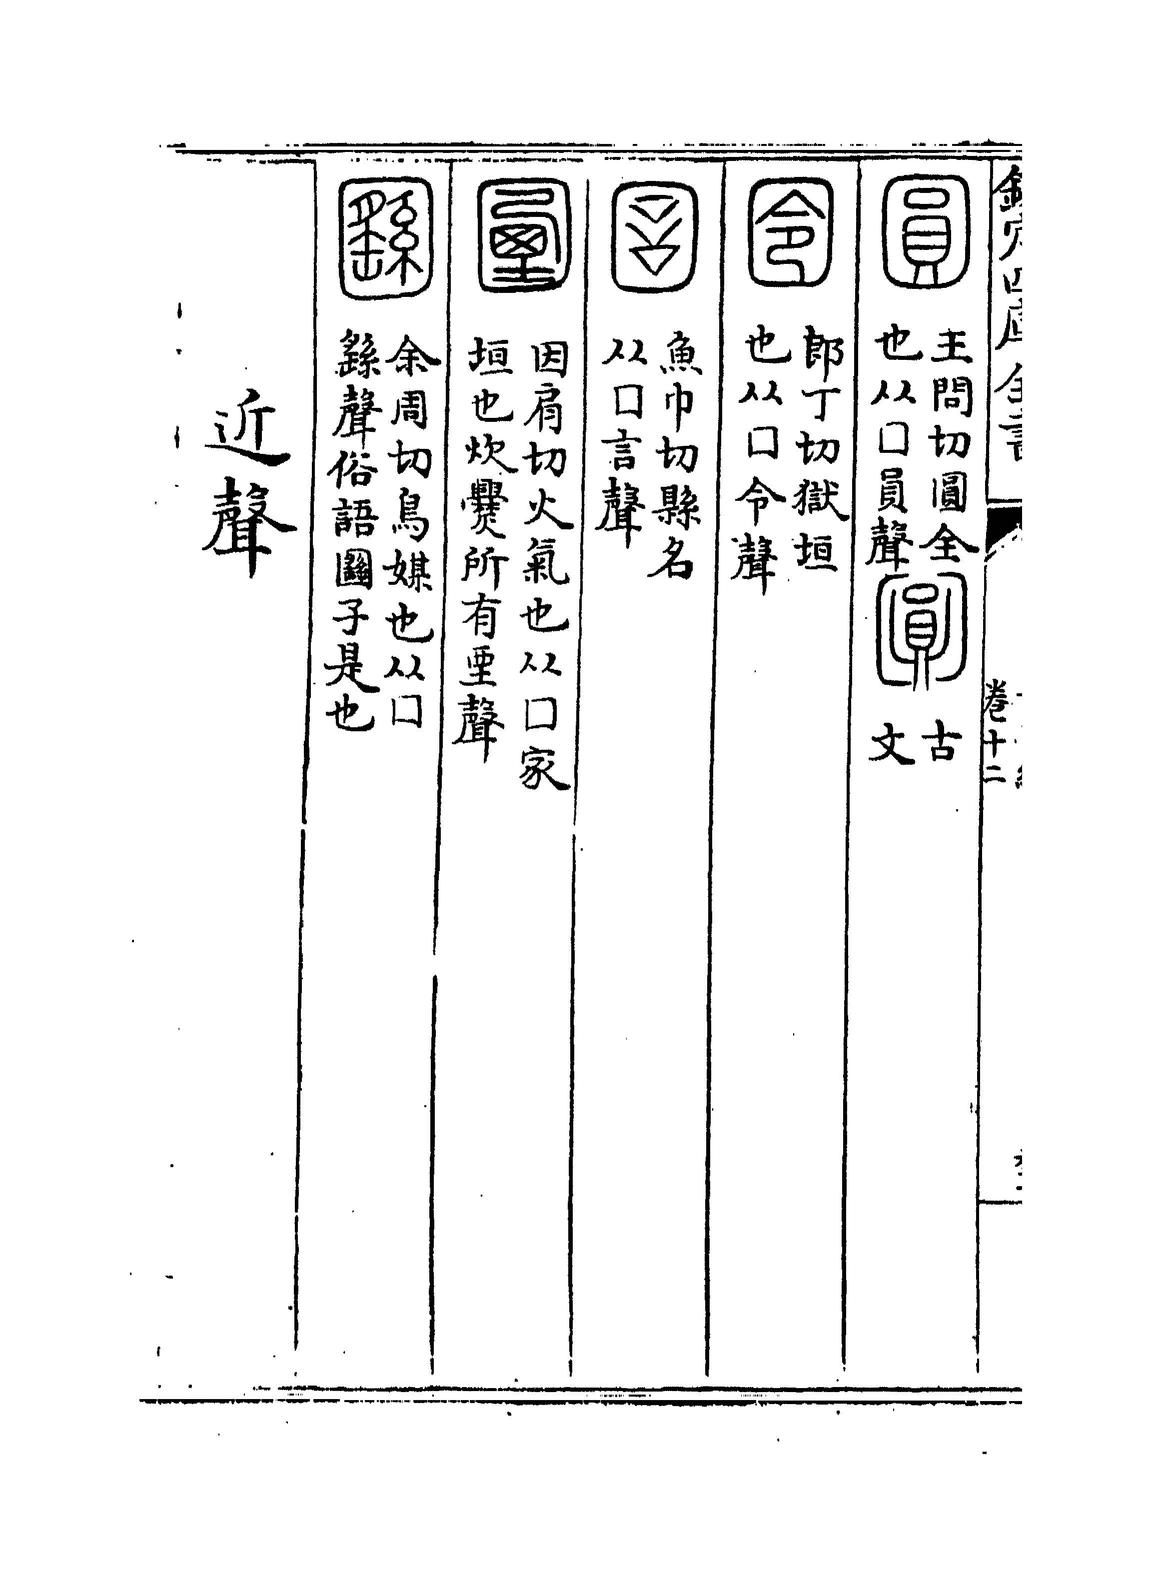 欽定四庫全書
卷十二
圓
王問切圓全
也从囗員聲
古
文
囹
郎丁切獄垣
也从囗令聲
魚巾切縣名
从囗言聲
因肩切火氣也从囗家
垣也炊爨所有垔聲
余周切鳥媒也从囗
繇聲俗語圝子是也
近聲